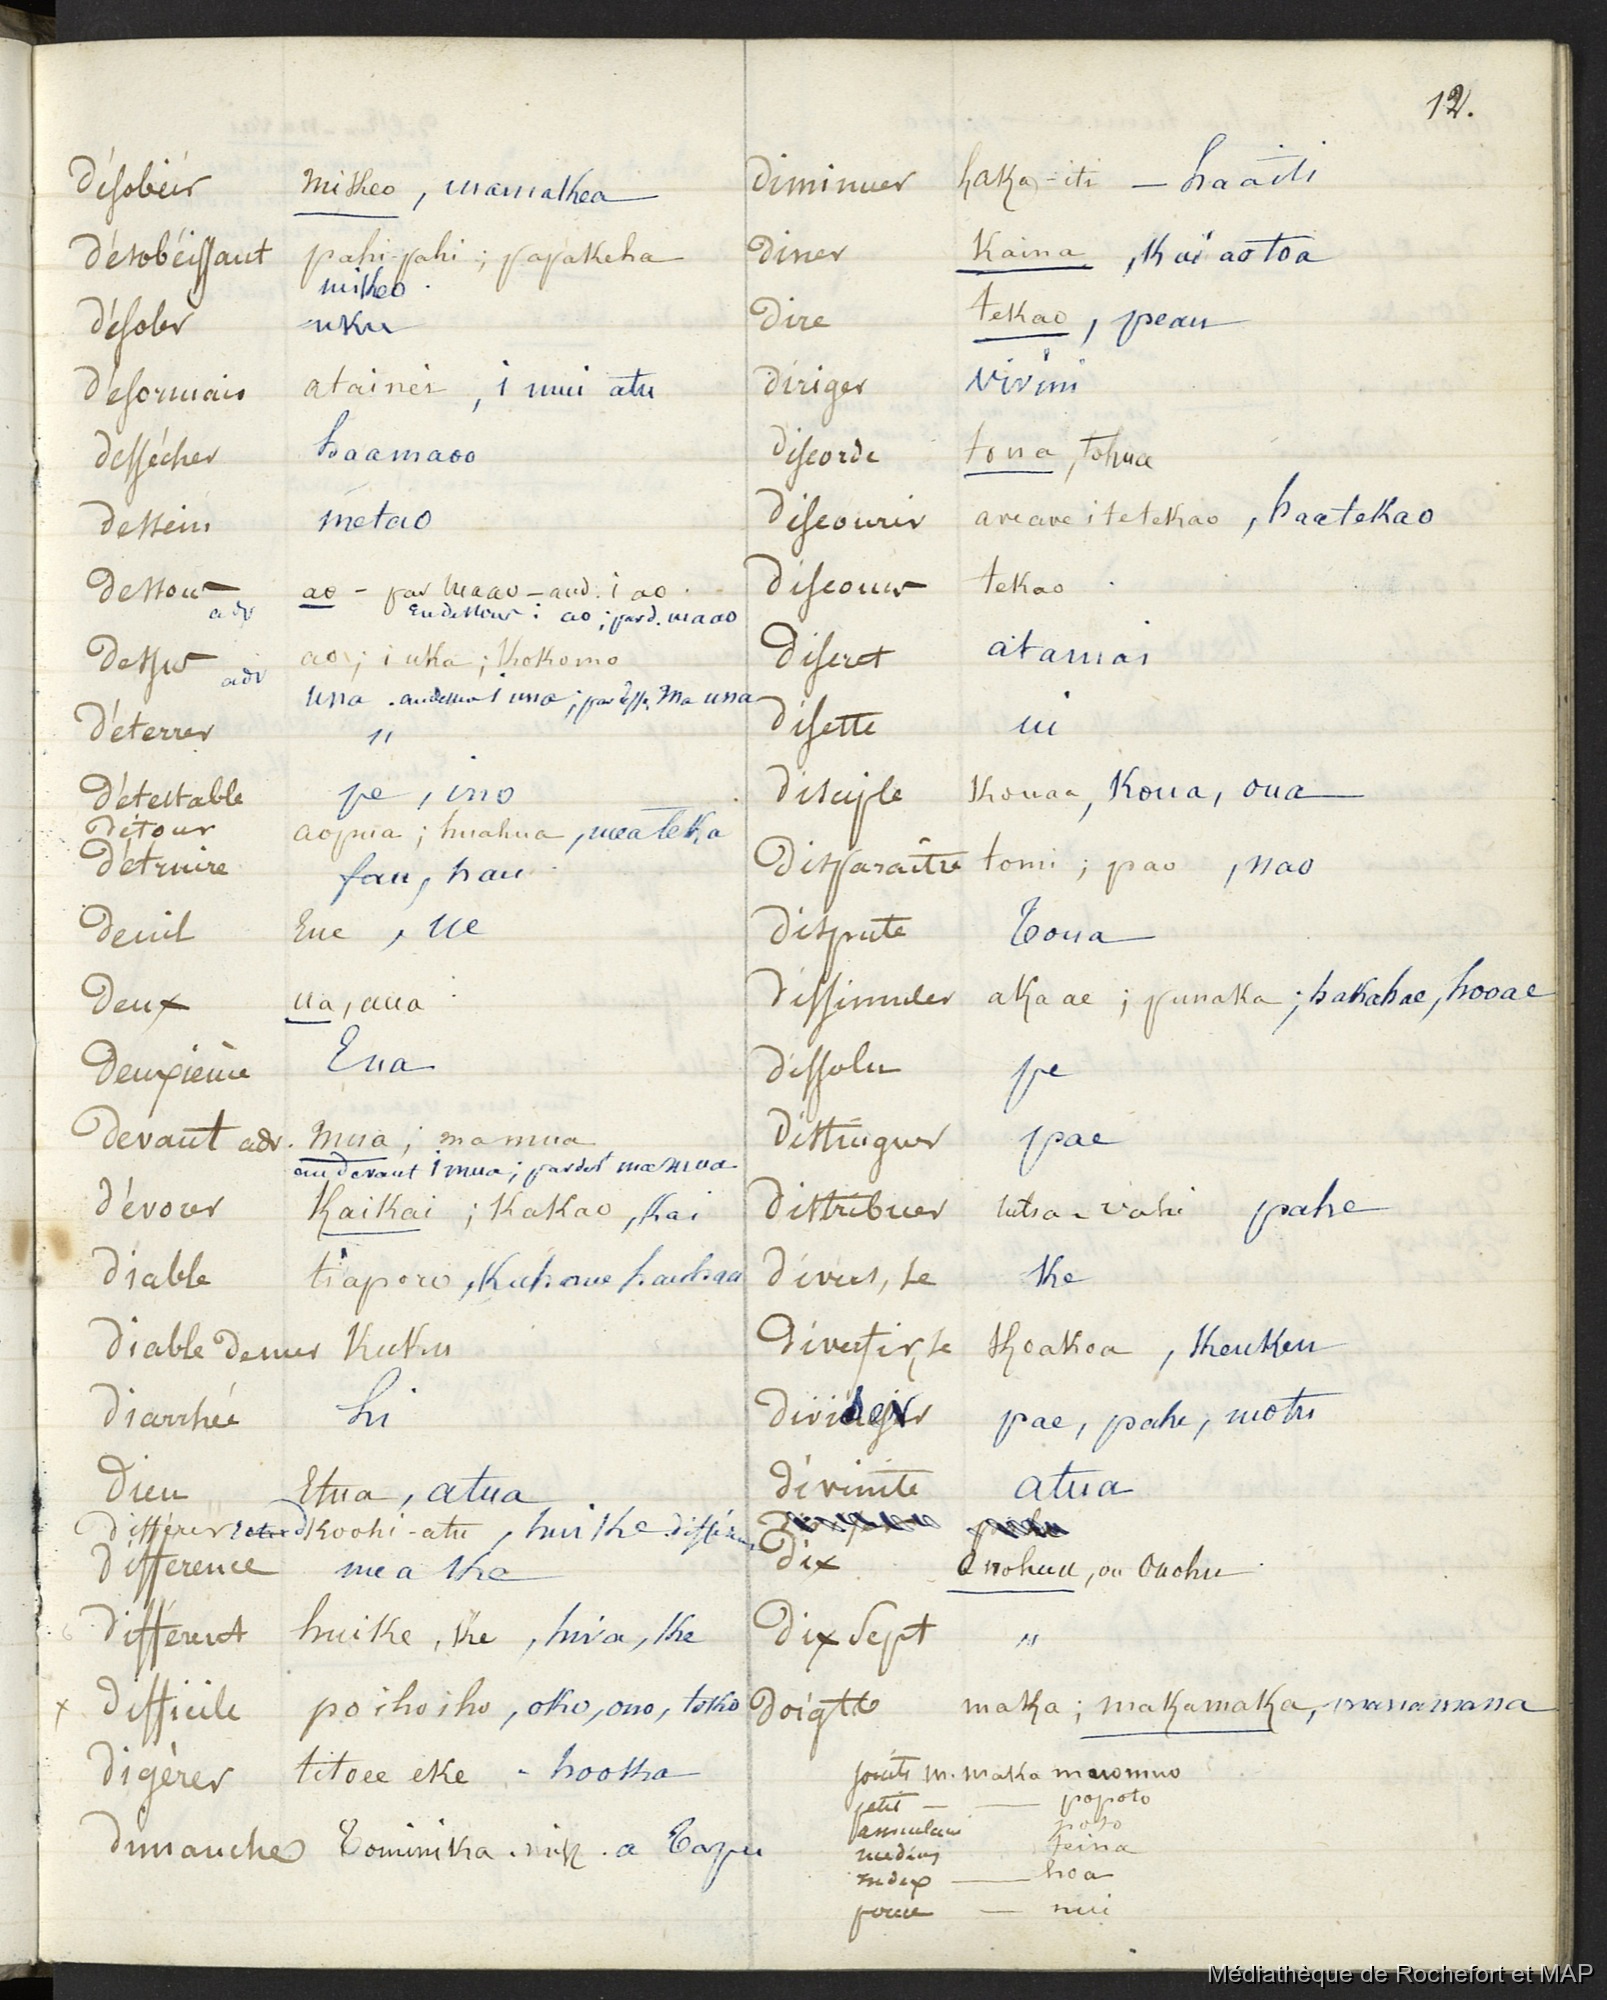 12.
désobéir mikeo, mamakea
désobéissant pahi-pahi ; papakeha
mikeo.
désoler uku
désormais atainei, i mui atu
dessécher haamaoo
dessein metao
dessous adv ao - par maao - aud. i ao.
en dessous i ao ; par d. maao
dessus adv ao ; i uka ; kokomo
una . au dessus i una ; par dess. ma una
déterrer "
détestable pe, ino
détour aopua ; huahua, mea teka
détruire fau, hau
deuil Eue, ue
deux ua, aua
deuxième Eua
devant adv. mua ; ma mua
au devant i mua ; par devt ma mua
dévorer kaikai ; kakao, kai
diable tiaporo, kuhane haahaa
diable de mer kuku
diarrhée hi
dieu Etua, atua
différer koohi-atu, hui ke
différence mea ke
différent huike, ke, hiva, ke
x difficile poihoiho, oko, ono, toko
digérer titoee eke - hooka
dimanche Tominika . a Tapu
diminuer haka-iti - haaiti
diner kaina, kai aotoa
dire tekao, peau
diriger vivini
discorde toua, tohua
discourir aveave i te tekao, haatekao
discours tekao
discret atamai
disette ui
disciple kouaa, koua, oua
disparaître tomi ; pao, nao
dispute Toua
dissimuler akaae ; punaka ; hakahae, hooae
dissolu pe
distinguer pae
distribuer tutsa-vahi pahe
divers, se ke
divertir, se koakoa, keukeu
diviser pae, pahe, motu
divinité atua
dix onohuu, ou onohu
dix sept "
doigt maka ; makamaka, manamana
petit popoto
annulaire poto
medius teina
index hoa
pouce nui
Médiathèque de Rochefort et MAP